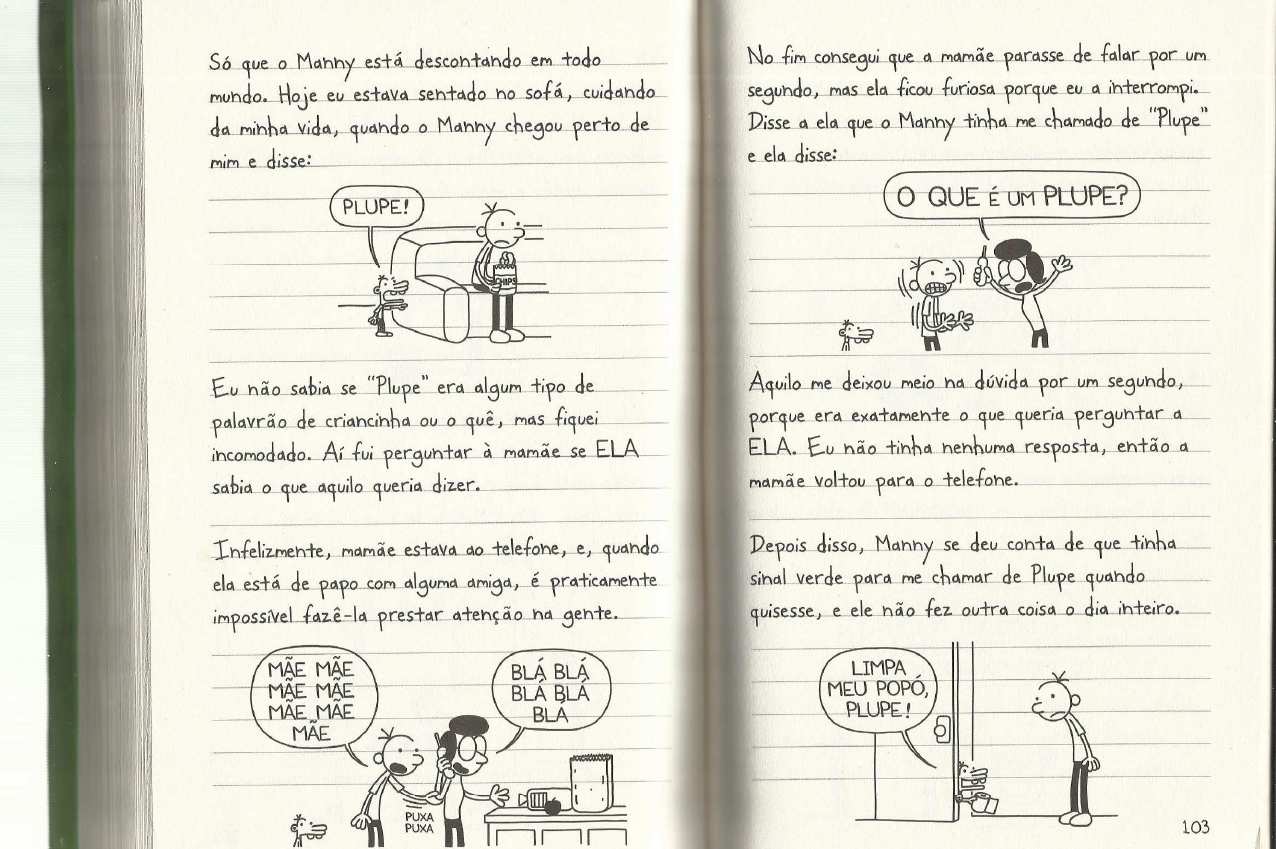 Só que o Manny está descontando em todo
mundo. Hoje eu estava sentado no sofá, cuidando
da minha vida, quando o Manny chegou perto de
mim e disse:
PLUPE!
CHIPS
Eu não sabia se "Plupe" era algum tipo de
palavrão de criancinha ou o quê, mas fiquei
incomodado. Aí fui perguntar à mamãe se ELA
sabia o que aquilo queria dizer.
Infelizmente, mamãe estava ao telefone, e, quando
ela está de papo com alguma amiga, é praticamente
impossível fazê-la prestar atenção na gente.
MÃE MÃE
MÃE MÃE
MÃE MÃE
MÃE
BLÁ BLÁ
BLÁ BLÁ
BLÁ
PUXA
PUXA
No fim consegui que a mamãe parasse de falar por um
segundo, mas ela ficou furiosa porque eu a interrompi.
Disse a ela que o Manny tinha me chamado de "Plupe"
e ela disse:
O QUE É UM PLUPE?
Aquilo me deixou meio na dúvida por um segundo,
porque era exatamente o que queria perguntar a
ELA. Eu não tinha nenhuma resposta, então a
mamãe voltou para o telefone.
Depois disso, Manny se deu conta de que tinha
sinal verde para me chamar de Plupe quando
quisesse, e ele não fez outra coisa o dia inteiro.
LIMPA
MEU POPÓ,
PLUPE!
103